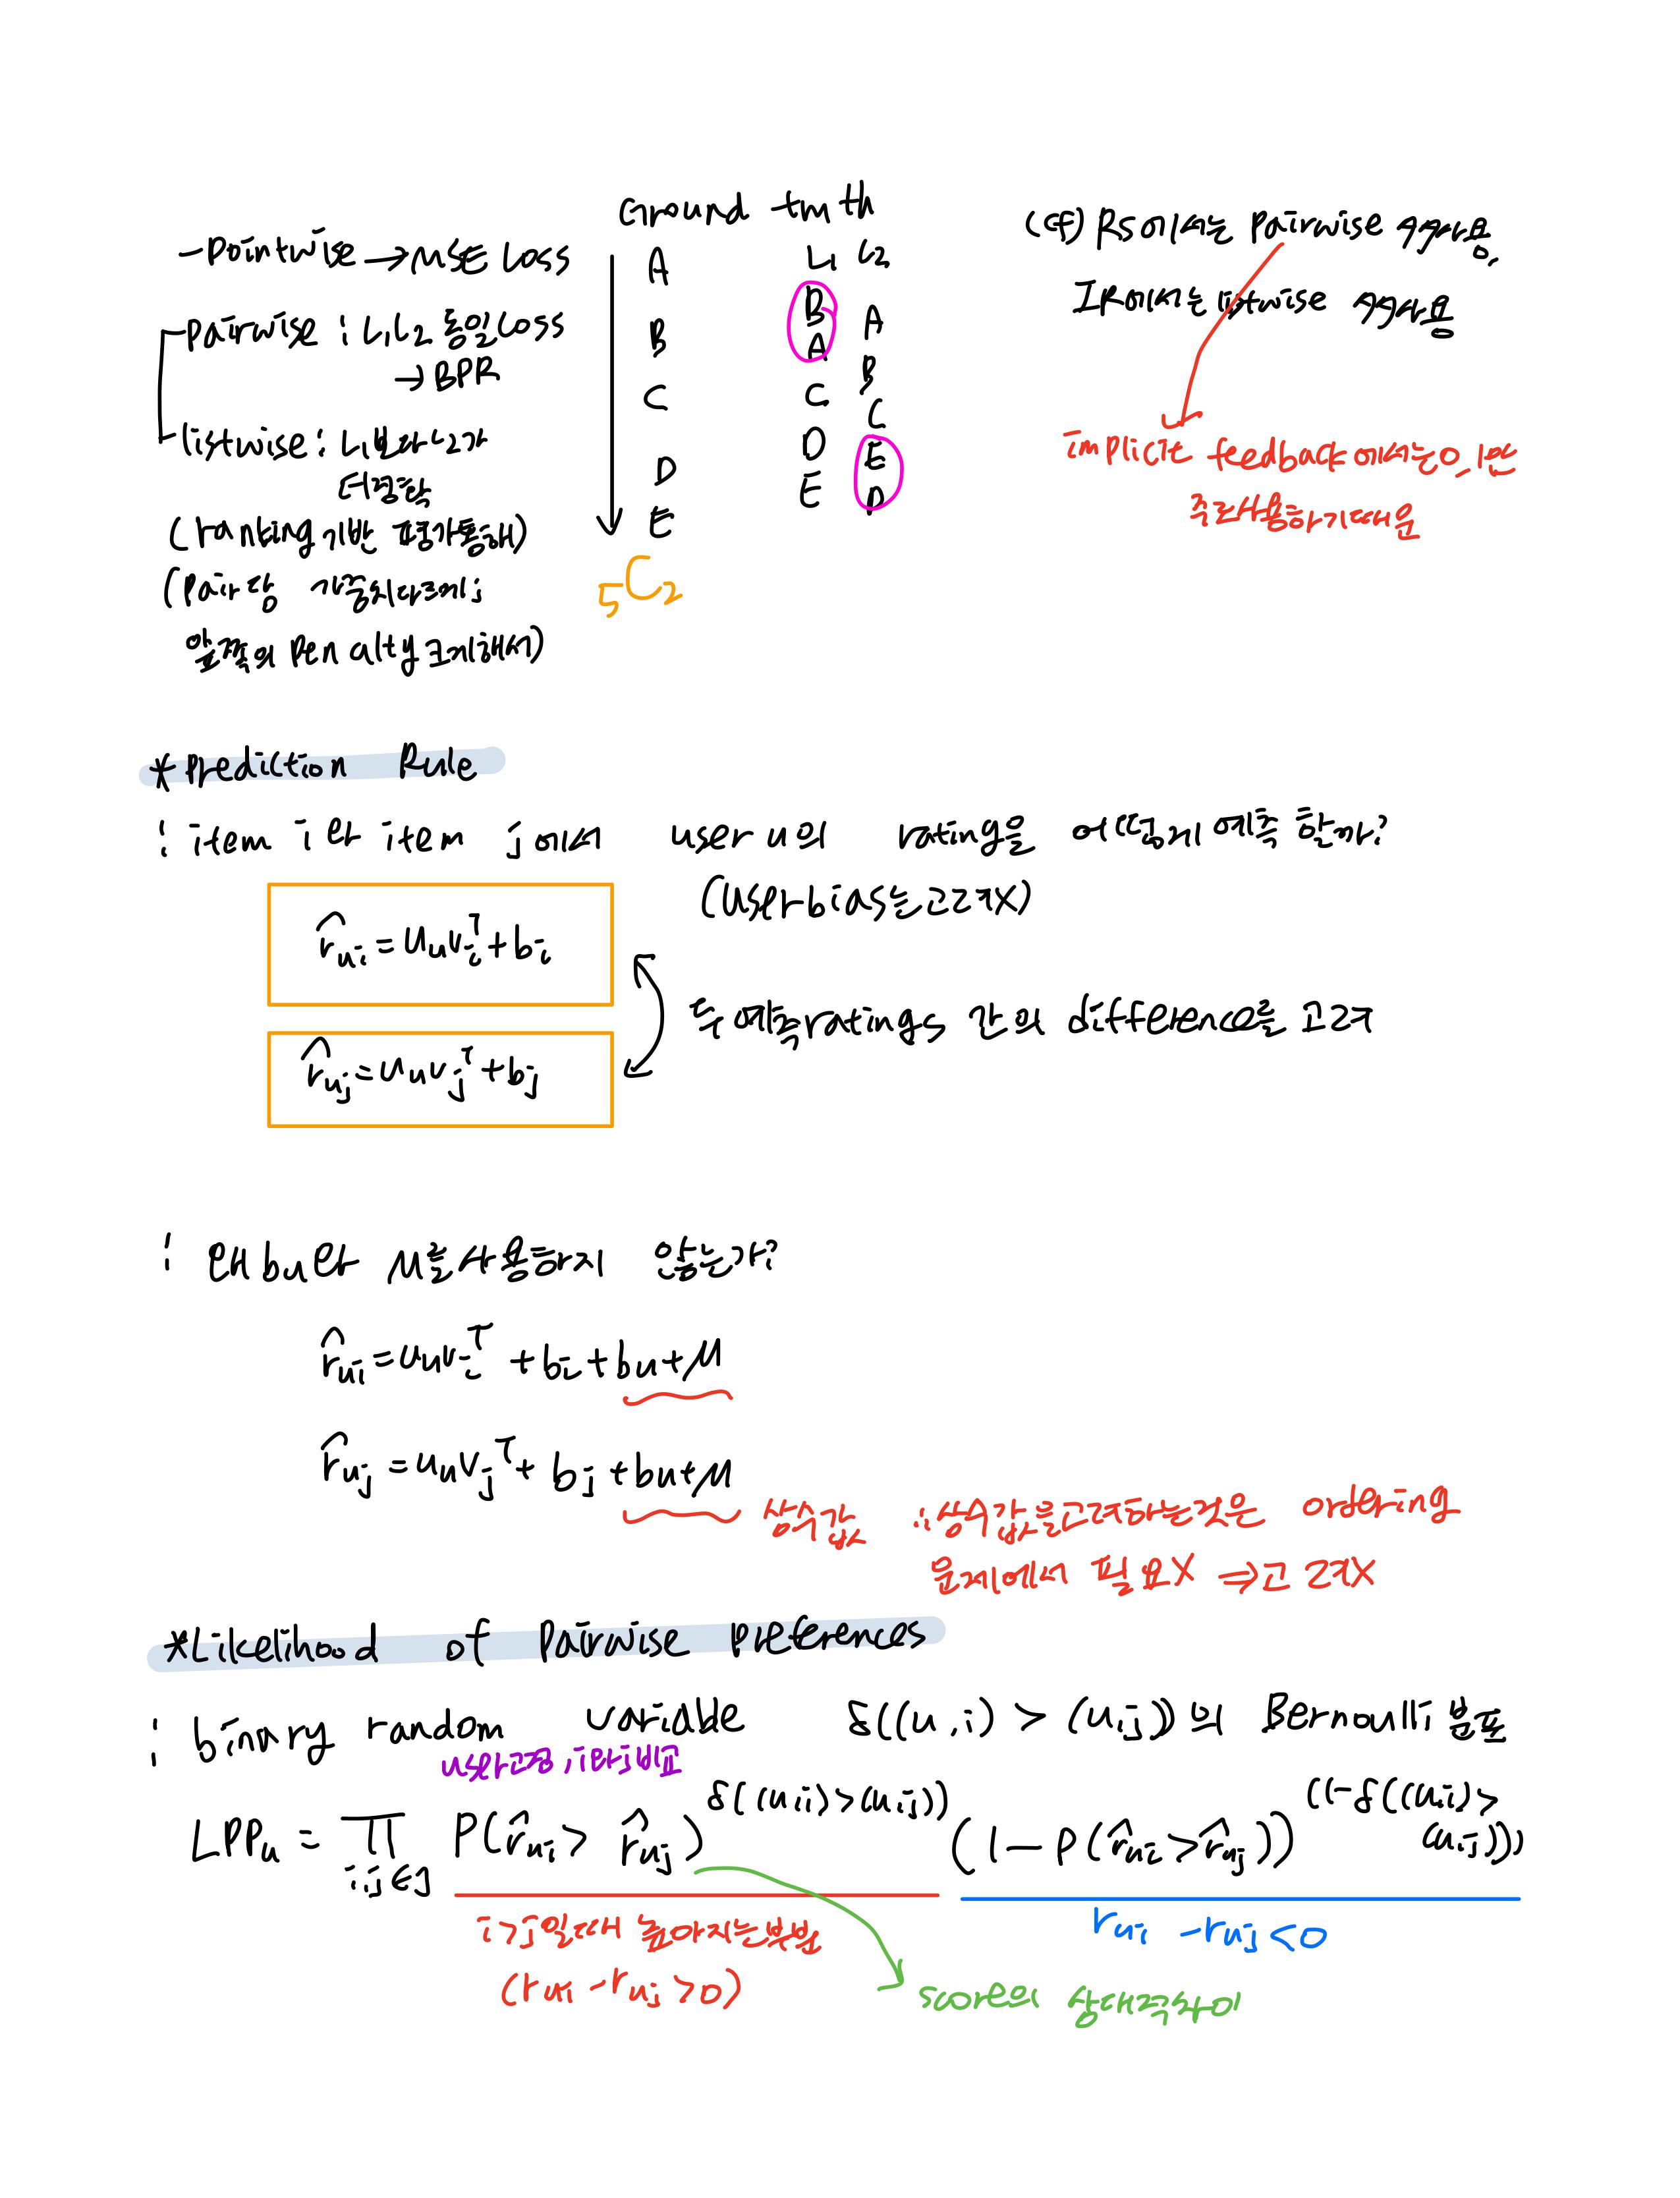 Ground truth
-Pointwise → MSE Loss
pairwise : L1, L2 동일 Loss
→ BPR
listwise : L1보다 L2가
더정확
(ranking기반 평가통해)
(pair당 가중치다르게;
앞쪽의 Penalty크게해서)
A
B
C
D
E
5C2
L1 L2
B A
A B
C C
D E
E D
(cf) RS에서는 Pairwise 多사용,
IR에서는 listwise 多사용
implicit feedback에서는 0,1만
주로사용하기때문
*Prediction Rule
: item i와 item j에서 user u의 rating을 어떻게 예측할까?
(User bias는고려X)
r̂ui = uuviᵀ + bi
r̂uj = uuvjᵀ + bj
두 예측ratings 간의 difference를 고려
: 왜 bu와 μ를사용하지 않는가?
r̂ui = uuviᵀ + bi + bu + μ
r̂uj = uuvjᵀ + bj + bu + μ
상수값 ∴상수값을고려하는것은 ordering
문제에서 필요X ⇒ 고려X
*Likelihood of Pairwise preferences
: binary random variable δ((u,i) > (u,j))의 Bernoulli 분포
user고정, i와j비교
LPPu = ∏ i,j∈J P(r̂ui > r̂uj)^δ((u,i)>(u,j)) (1 − P(r̂ui > r̂uj))^(1−δ((u,i)>(u,j)))
i>j일때 높아지는부분
(rui − ruj > 0)
rui − ruj < 0
score의 상대적차이